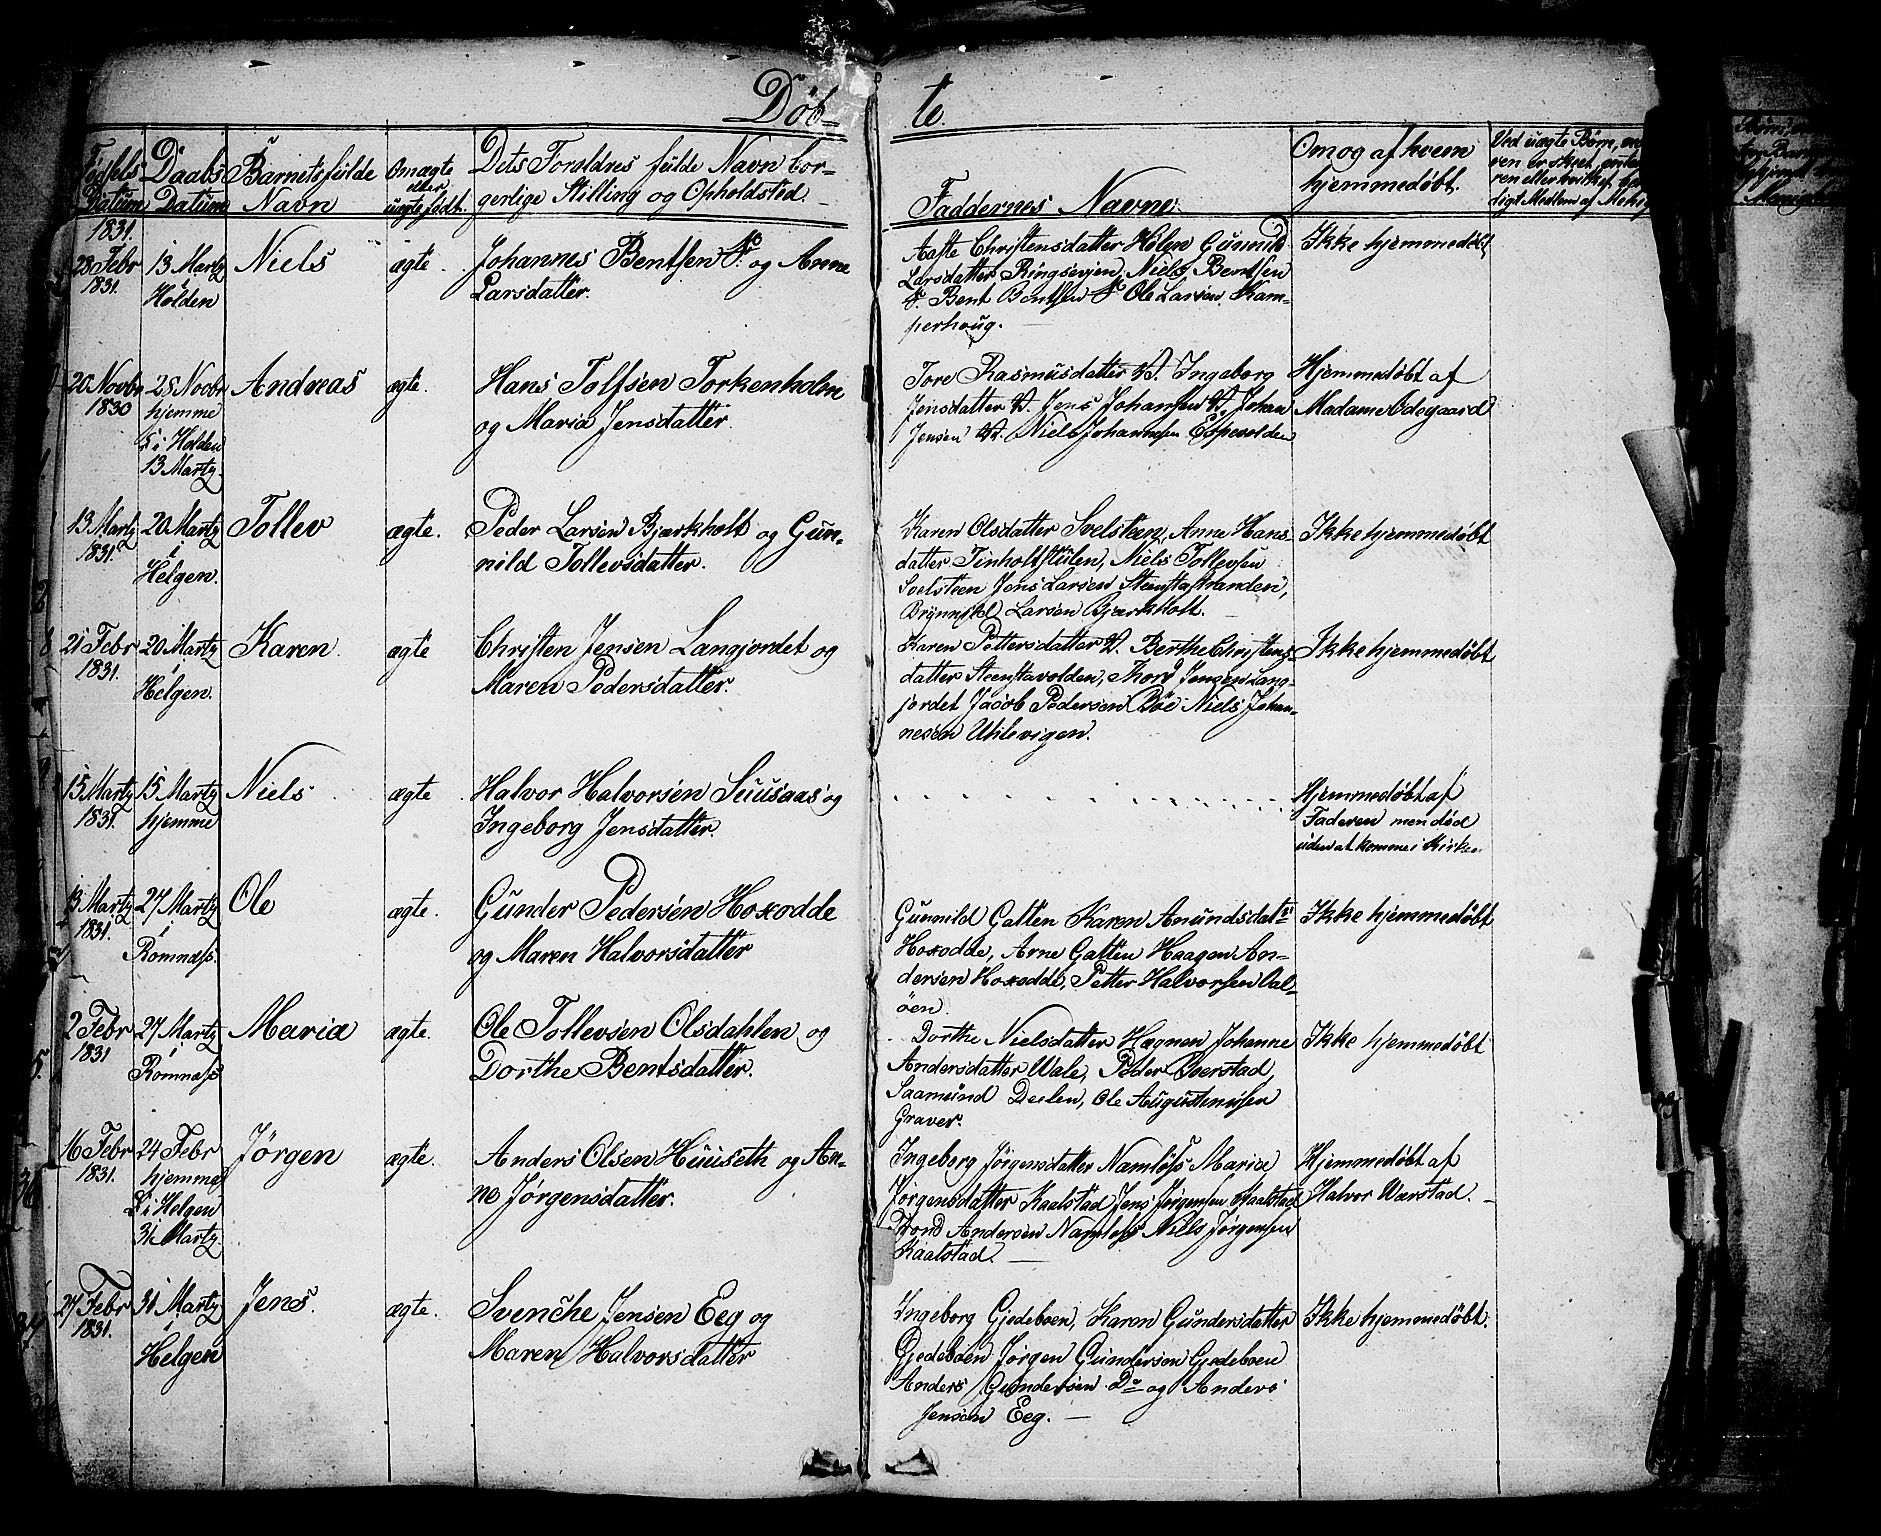 Döb- te.
Fødsels Datum
Daabs Datum
Barnets fulde Navn
Om ægte eller uægte født.
Dets Forældres fulde Navn bor-
gerlige Stilling og Opholdsted.
Faddernes Navne.
Om og af hvem hjemmedøbt.
Ved uægte Børn, om
1831.
28 Febr 1831.
13 Martz i Holden
Niels
ægte.
Johannes Bentsen og Anne
Larsdatter.
Aaste Christensdatter Holen Gunnild
Larsdatter Ringsevjen, Niels Bentsen
Bent Bentsen Ole Larsen Kam-
perhoug.
Ikke hjemmedøbt
20 Novbr 1830
28 Novbr hjemme
i Holden
13 Martz.
Andreas
ægte.
Hans Tolfsen Torkenholm
og Maria Jensdatter.
Tore Rasmusdatter Ingeborg
Jensdatter Jens Johansen Johan
Jensen Niels Johannesen Espevolden
Hjemmedøbt af
Madame Odegaard
13 Martz 1831.
20 Martz i Helgen.
Tollev
ægte.
Peder Larsen Bjærkholt og Gun-
nild Tollevsdatter.
Karen Olsdatter Svelsteen, Anne Hans-
datter Tinholtstulen, Niels Tollevsen
Svelsteen Jens Larsen Steenstastranden,
Larsen Bjærkholt.
Ikke hjemmedøbt
21 Febr 1831.
20 Martz i Helgen.
Karen
ægte
Christen Jensen Langjordet og
Maren Pedersdatter.
Karen Pettersdatter Berthe Christens-
datter Steenstavolden, Thord Jensen Lang-
jordet Jacob Pedersen Böe Niels Johan-
nesen Uhlevigen.
Ikke hjemmedøbt
15 Martz 1831.
15 Martz hjemme
Niels
ægte
Halvor Halvorsen Suusaas og
Ingeborg Jensdatter.
Hjemmedøbt af
Faderen men død
uden at komme i Kirke
13 Martz 1831.
27 Martz i Romnæss.
Ole
ægte.
Gunder Pedersen Hoxodde
og Maren Halvorsdatter
Gunnild Gatten Karen Anundsdatr
Hoxodde, Arne Gatten Haagen An-
dersen Hoxodde, Petter Halvorsen Aal-
öen.
Ikke hjemmedøbt
2 Febr 1831
27 Martz i Romnæss
Maria
ægte.
Ole Tollevsen Olsdahlen og
Dorthe Bentsdatter.
Dorthe Nielsdatter Hægnen Johanne
Andersdatter Wale, Peder Iverstad,
Saamund Deelen, Ole Augustinusen
Graver.
Ikke hjemmedøbt
16 Febr 1831.
24 Febr hjemme
i Helgen
31 Martz.
Jørgen
ægte.
Anders Olsen Huuseth og An-
ne Jørgensdatter.
Ingeborg Jörgensdatter Namløss Maria
Jørgensdatter Kaalstad Jens Jørgensen Kaalstad
Trond Andersen Namløss Niels Jørgensen
Kaalstad.
Hjemmedøbt af
Halvor Wærstad.
27 Febr 1831.
31 Martz i Helgen
Jens.
ægte.
Svenche Jensen Eeg og
Maren Halvorsdatter
Ingeborg Gjedeboen, Karen Gundersdatter
Gjedeboen Jörgen Gundersen Gjedeboen
Anders Gundersen Do og Anders
Jensen Eeg.
Ikke hjemmedøbt.